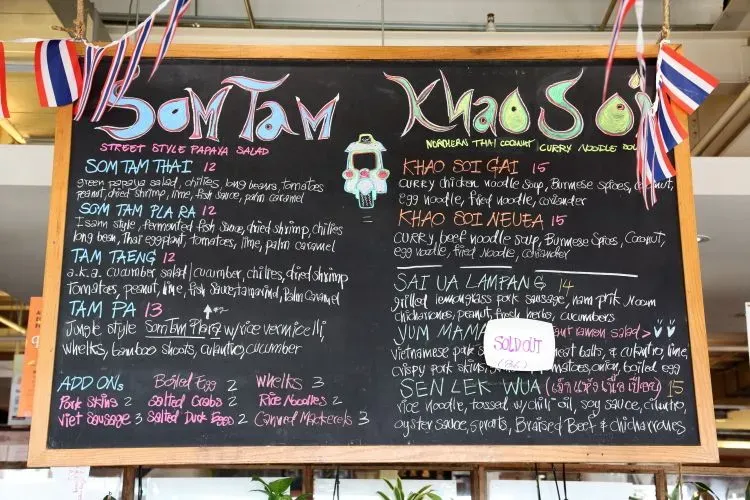 Som Tam
STREET STYLE PAPAYA SALAD
SOM TAM THAI 12
green papaya salad, chilies, long beans, tomatoes
peanut, dried shrimp, lime, fish sauce, palm caramel
SOM TAM PLA RA 12
Isarn style, fermented fish sauce, dried shrimp, chilies
long bean, Thai eggplant, tomatoes, lime, palm caramel
TAM TAENG 12
a.k.a. cucumber salad / cucumber, chilies, dried shrimp
Tomatoes, peanut, lime, fish sauce, tamarind, Palm Caramel
TAM PA 13
Jungle style Som Tam Plara w/ rice vermicelli,
whelks, bamboo shoots, culantro, cucumber
ADD ONs
Pork Skins 2
Viet Sausage 3
Boiled Egg 2
Salted Crabs 2
Salted Duck Eggs 2
Whelks 3
Rice Noodles 2
Canned Mackerels 3
Khao Soi
NORTHERN THAI COCONUT CURRY NOODLE
KHAO SOI GAI 15
CURRY chicken noodle soup, Burmese spices,
egg noodle, fried noodle, coriander
KHAO SOI NEUEA 15
CURRY, beef noodle soup, Burmese Spices, Coconut,
egg noodle, fried Noodle, coriander
SAI UA LAMPANG 14
grilled lemongrass pork sausage, nam prik noom
chicharrones, peanut, fresh herbs, cucumbers
YUM MAMA ramen salad >
SOLD OUT
(86)
Vietnamese pork meat balls, & culantro, lime,
crispy pork skins, tomatoes, onion, boiled egg
SEN LEK WUA 15
rice noodle, tossed w/ chili oil, soy sauce, cilantro,
oyster sauce, sprouts, Braised Beef & chicharrones